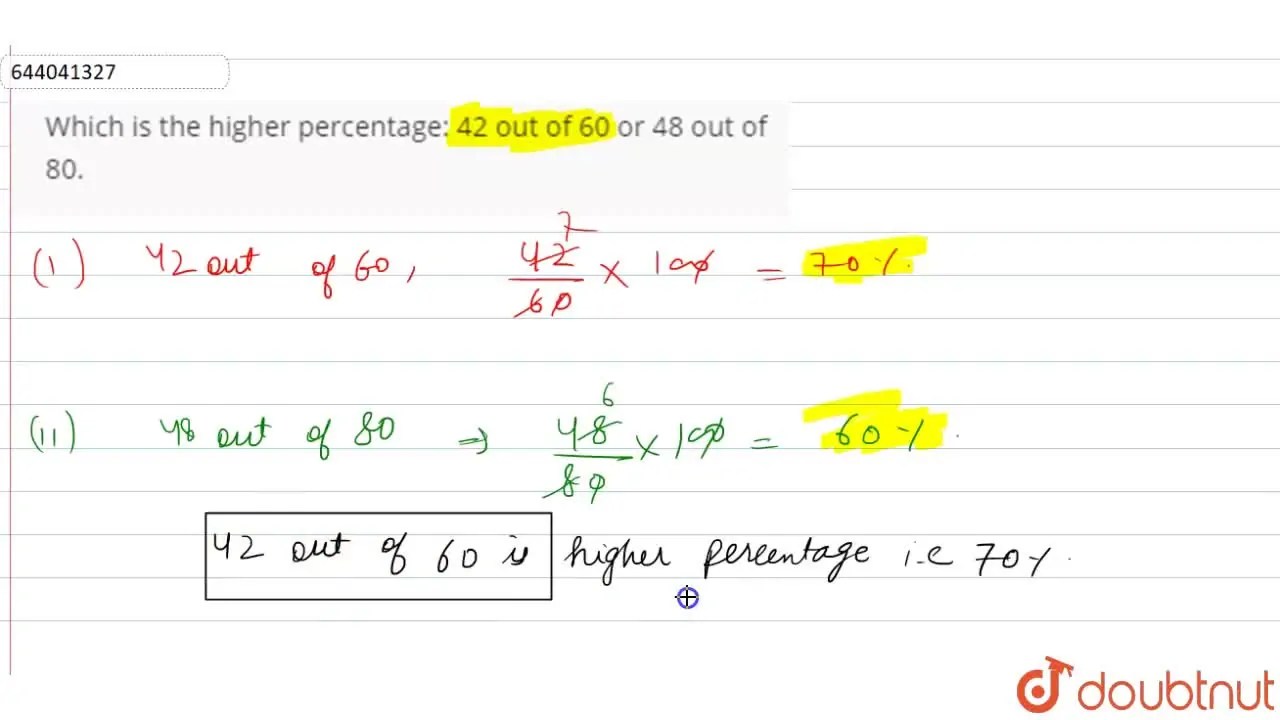 644041327
Which is the higher percentage: 42 out of 60 or 48 out of
80.
(i) 42 out of 60, 42/60 × 100 = 70%.
7
(ii) 48 out of 80 ⇒ 48/80 × 100 = 60%.
6
42 out of 60 is higher percentage i.e 70%.
doubtnut